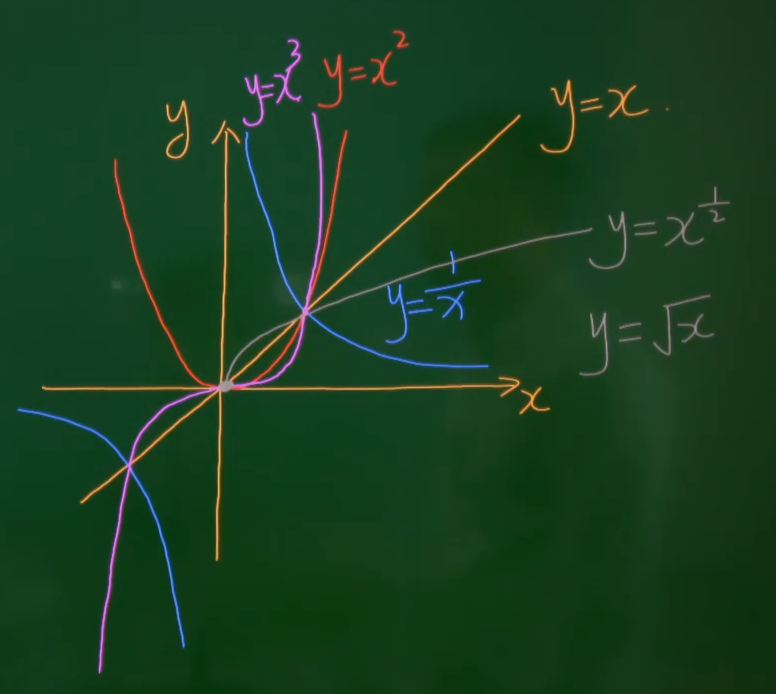 y=x³
y=x²
y
y=x.
y=x^{1/2}
y=1/x
y=√x
x